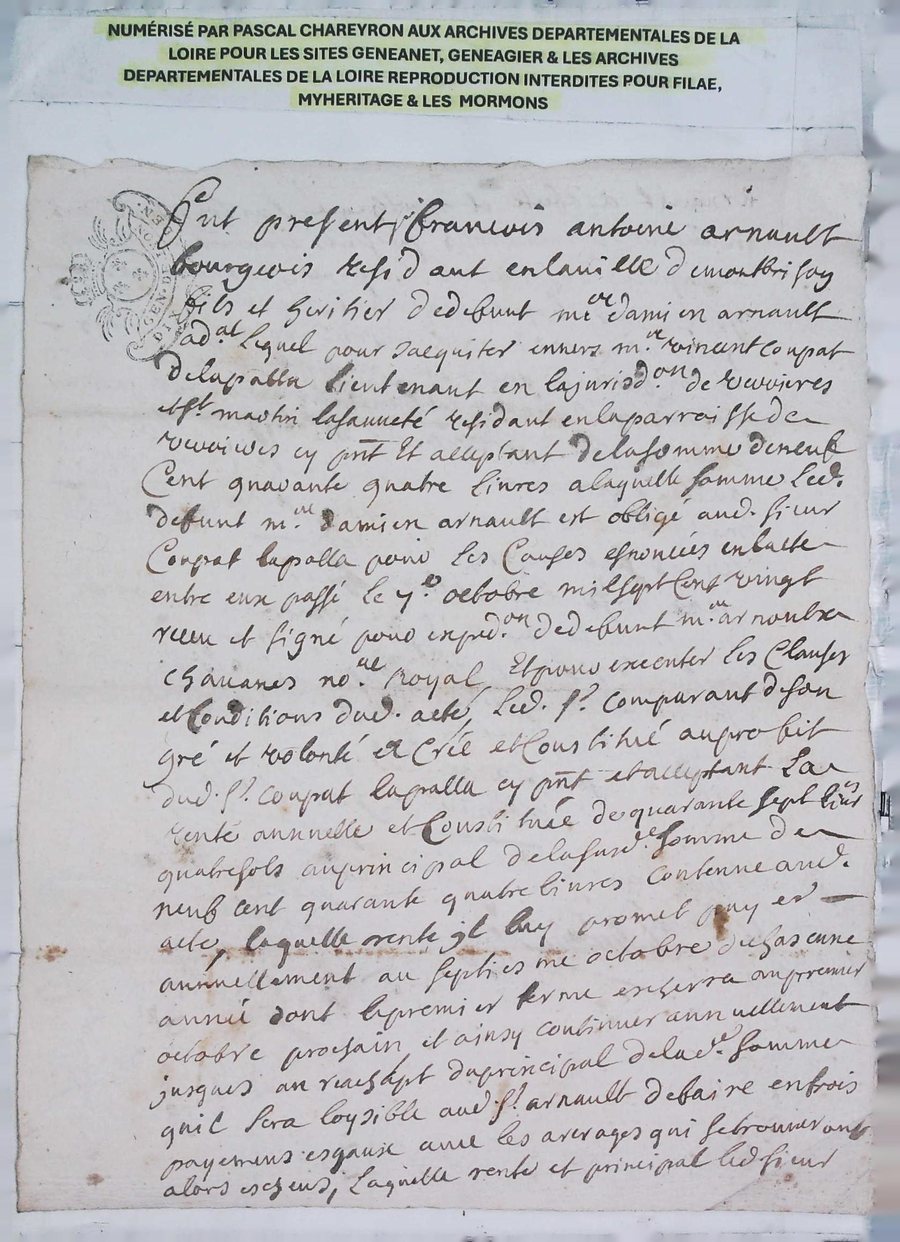 NUMÉRISÉ PAR PASCAL CHAREYRON AUX ARCHIVES DEPARTEMENTALES DE LA
LOIRE POUR LES SITES GENEANET, GENEAGIER & LES ARCHIVES
DEPARTEMENTALES DE LA LOIRE REPRODUCTION INTERDITES POUR FILAE,
MYHERITAGE & LES MORMONS
GEN DE LYON
Fut present francois antoine arnault
bourgeois residant en la ville de montbrison
fils et heritier de defunt me damien arnault
adat lequel pour saequiter envers mre vincent coupat
delapalla lieutenant en la jurisdon de verrieres
et st martin lasauveté residant en la parroisse de
verrieres cy pnt Et acceptant de la somme de neuf
Cent quarante quatre livres a laquelle somme led.
defunt me damien arnault est obligé aud. sieur
Coupat lapalla pour les Causes esnoncées en lacte
entre eux passé le 7e octobre mil sept Cent vingt
receu et signé pour expedon de defunt me arnoulx
chavanes nore Royal, Et pour executer les Clauses
et Conditions dud. acte, Led. sr. comparant de son
gré et volonté a Créé et Constitué au profit
dud. sr. coupat lapalla cy pnt et acceptant La
rente annuelle et Constituée de quarante sept livres
quatre sols au principal de la susde somme de
neuf cent quarante quatre livres contenue aud.
acte, laquelle rente jl luy promet payer
annuellement au septiesme octobre de chascune
année dont le premier terme escherra au premier
octobre prochain et ainsy continuer annuellement
jusques au reachapt du principal de lade somme
quil sera loysible aud. sr. arnault de faire en trois
payemens esgaux avec les arerages qui se trouveront
alors escheus, Laquelle rente et principal led sieur